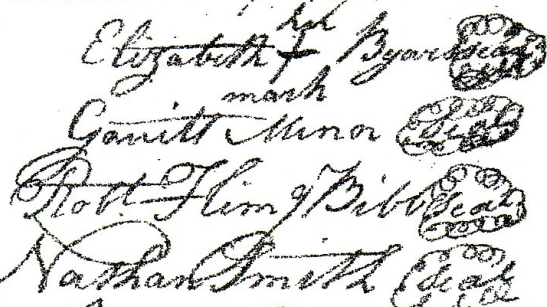 her
Elizabeth + Byars seal
mark
Garritt Minor seal
Robt Flemg Bibb seal
Nathan Smith seal